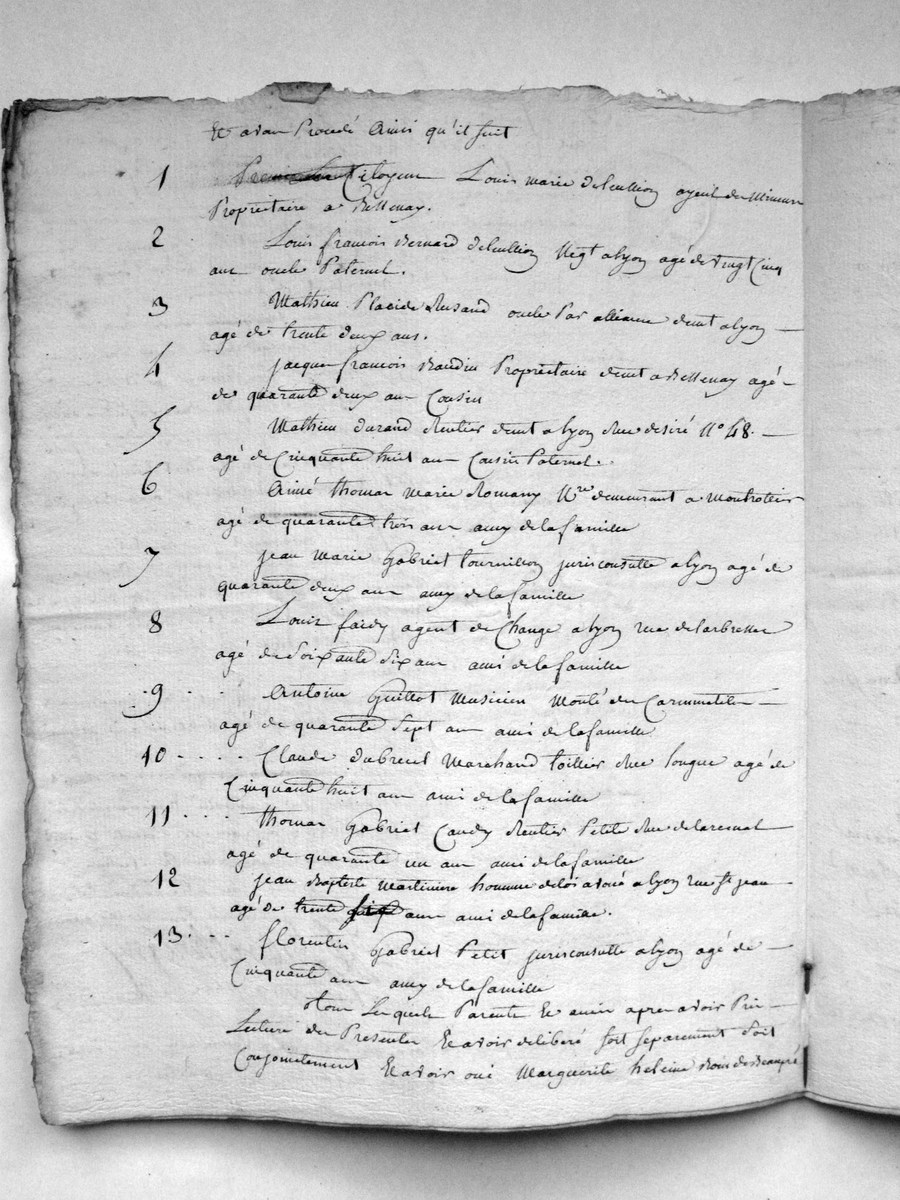 Et avan Procedé Ainsi qu'il suit
1 Citoyen Louis Marie Deleullion ayeul des Mineurs
Propriétaire a Bessenay.
2 Louis françois Bernard Deleullion Negt a lyon agé de vingt Cinq
ans oncle Paternel.
3 Mathieu Placide Rusand oncle Par alliance demt a lyon
agé de trente deux ans.
4 jacque françois Baudin Propriétaire demt a Bessenay agé
de quarante deux ans Cousin
5 Mathieu durand Rentier demt a lyon Rue desiré N° 48.
agé de Cinquante huit ans Cousin Paternel.
6 Aimé thomas Marie Romany Nre demeurant a Montrotier
agé de quarante trois ans amy de la famille
7 jean Marie Gabriel tournillon jurisconsulte a lyon agé de
quarante deux ans amy de la famille
8 Louis fardy agent de Change a lyon rue de larbresse
agé de Soixante Six ans ami de la famille
9 Antoine Guillot Musicien Monté des Carmmelites
agé de quarante Sept ans ami de la famille
10 Claude dubreuil Marchand toillier Rue longue agé de
Cinquante huit ans ami de la famille
11 thomas Gabriel Candy Rentier Petite Rue de
agé de quarante un ans ami de la famille
12 jean Baptiste Martiniere homme de loi avoué a lyon rue St jean
agé de trente ans ami de la famille.
13 florentin Gabriel Petit jurisconsulte a lyon agé de
Cinquante ans amy de la famille
tous Lesquels Parents Et amis apres avoir Pris
Lecture des Presentes Et avoir deliberé soit separement soit
Conjointement Et avoir oui Marguerite heleine